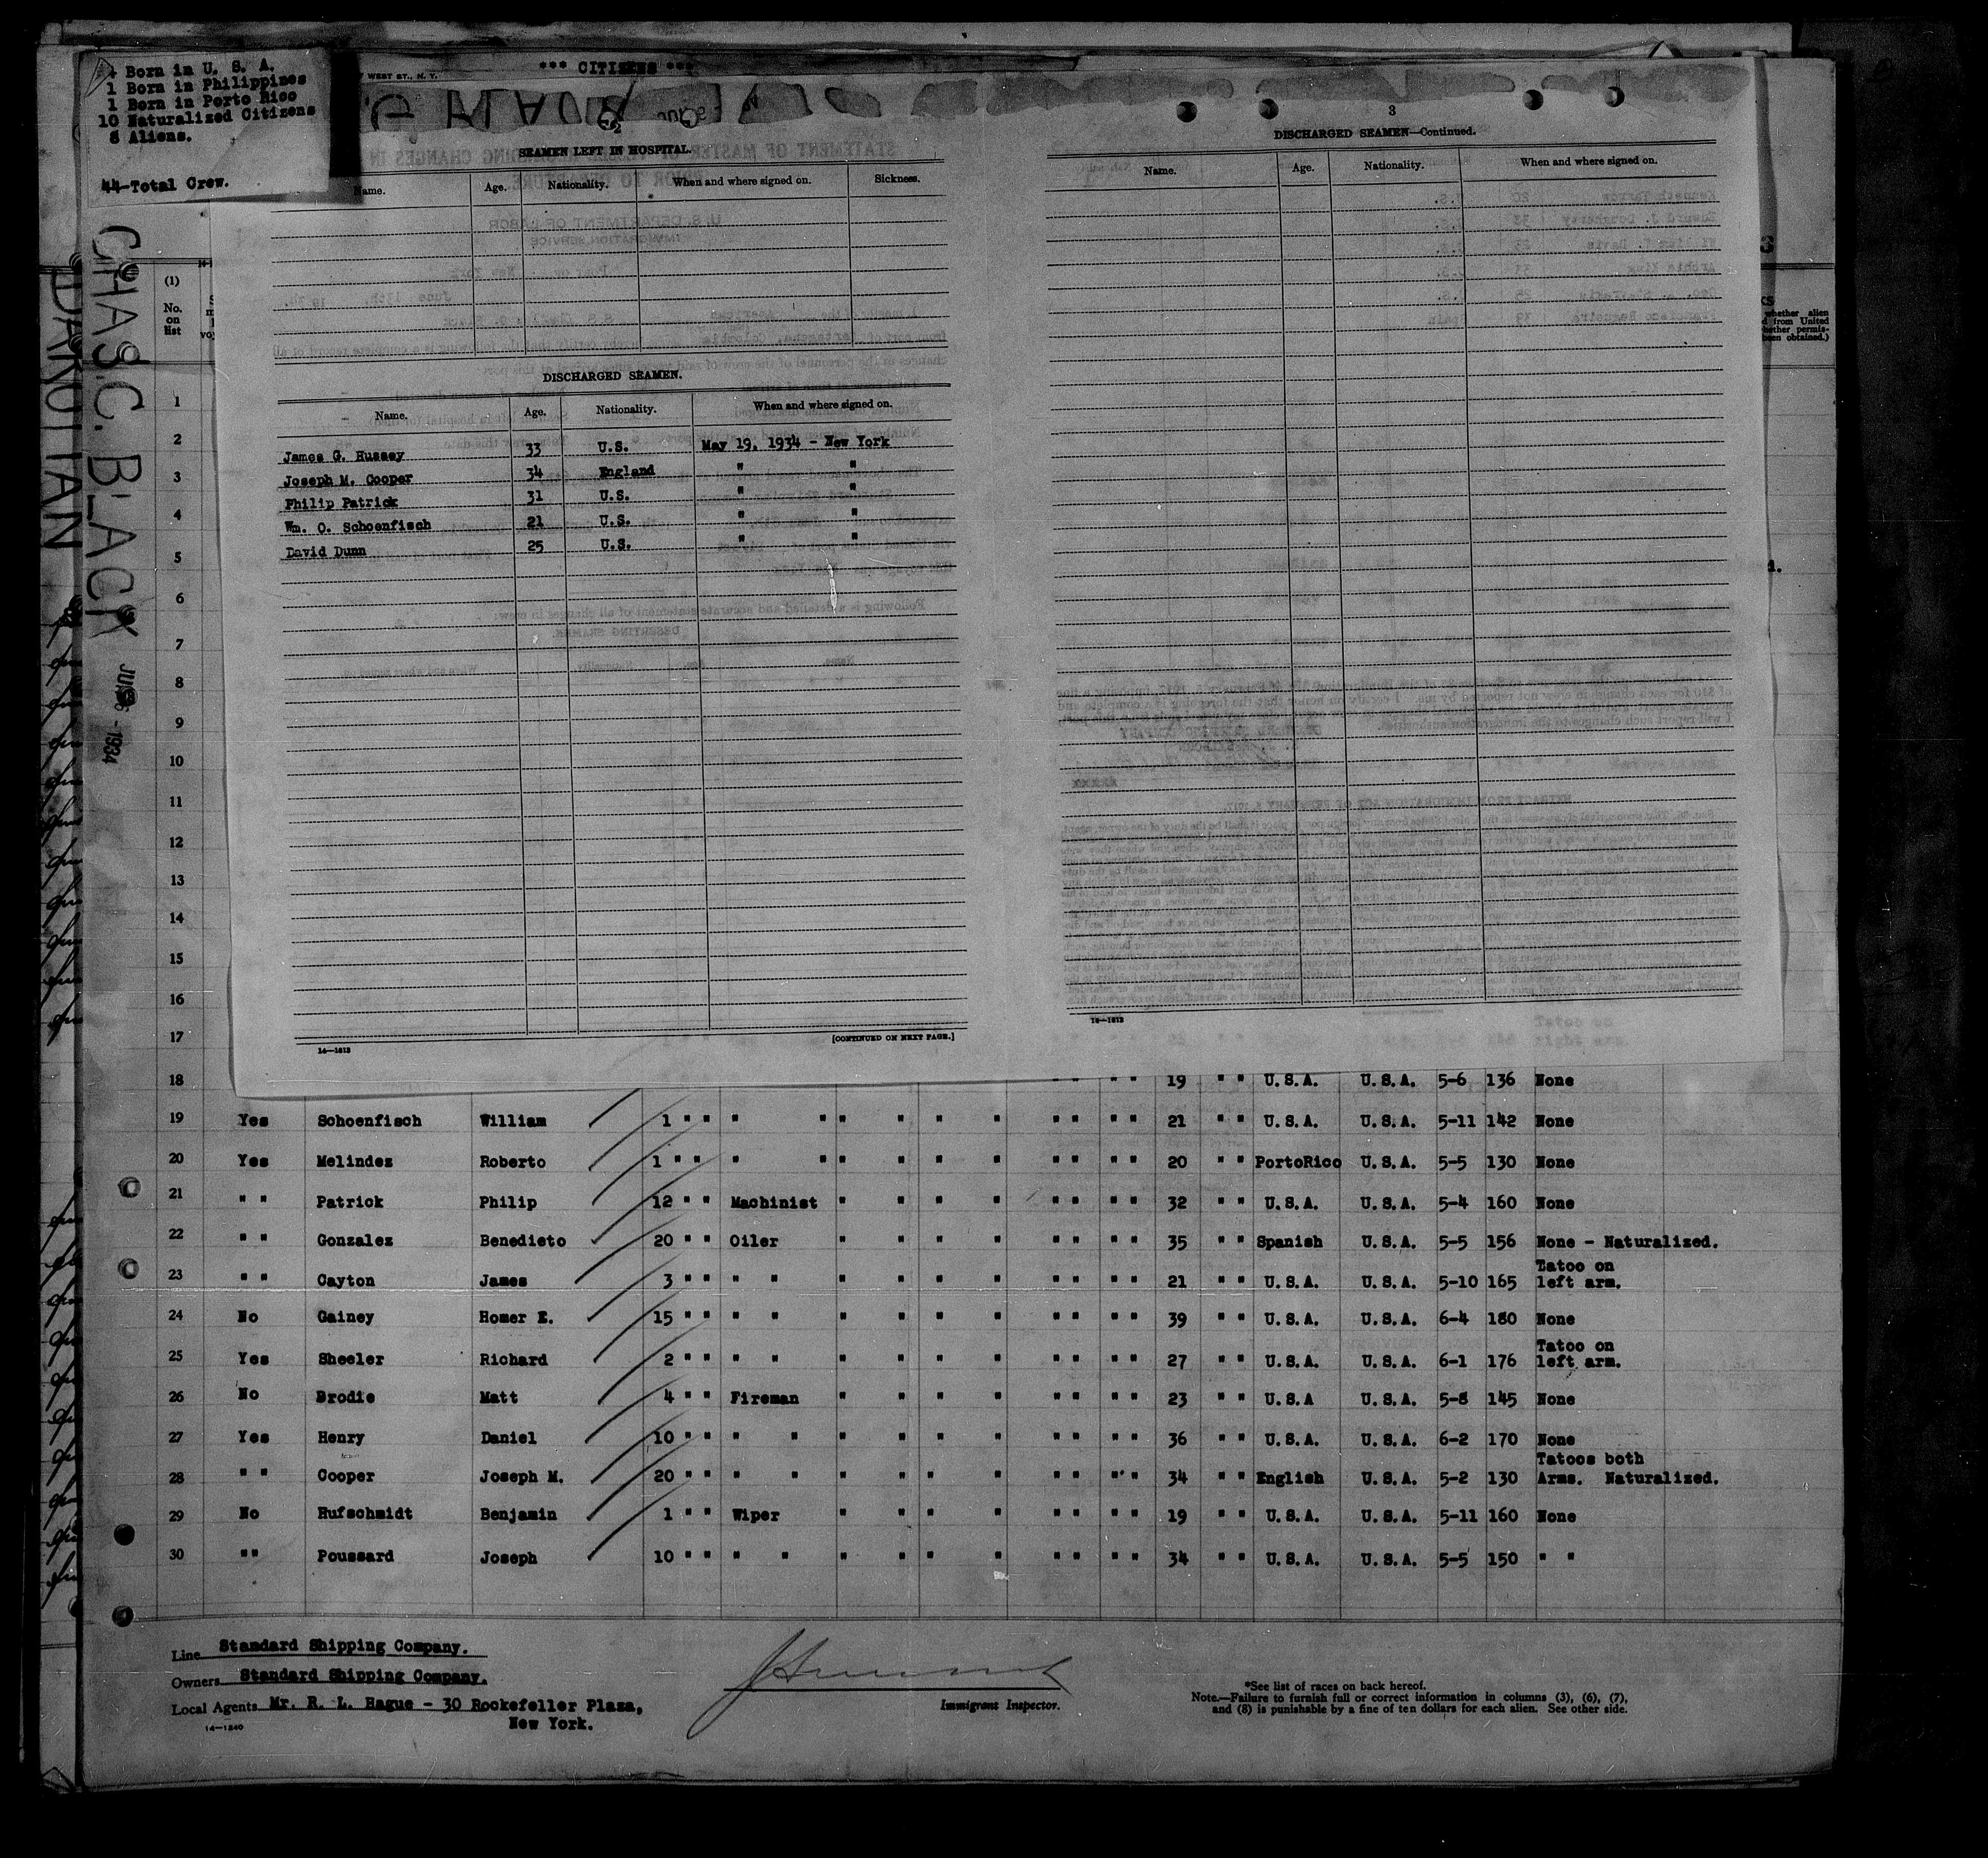 Born in U. S. A.
1 Born in Philippines
1 Born in Porto Rico
10 Naturalized Citizens
8 Aliens.
44-Total Crew.
WEST ST., N. Y.
*** CITIZENS ***
CHAS. C. BLACK
1934
DARUTIAN
2
SEAMEN LEFT IN HOSPITAL.
Name. Age. Nationality. When and where signed on. Sickness.
DISCHARGED SEAMEN.
Name. Age. Nationality. When and where signed on.
James G. Hussey 33 U.S. May 19, 1934 - New York
Joseph M. Cooper 34 England " "
Philip Patrick 31 U.S. " "
Wm. O. Schoenfisch 21 U.S. " "
David Dunn 25 U.S. " "
[CONTINUED ON NEXT PAGE.]
14—1613
3
DISCHARGED SEAMEN—Continued.
Name. Age. Nationality. When and where signed on.
16—1613
(1)
No.
on
list
whether alien
from United
whether permis-
been obtained.)
1
2
3
4
5
6
7
8
9
10
11
12
13
14
15
16
17
18 " " " " 19 " " U.S.A. U.S.A. 5-6 136 None
19 Yes Schoenfisch William 1 " " " " " " " " " " " " 21 " " U.S.A. U.S.A. 5-11 142 None
20 Yes Melindez Roberto 1 " " " " " " " " " " " " 20 " " PortoRico U.S.A. 5-5 130 None
21 " " Patrick Philip 12 " " Machinist " " " " " " " " 32 " " U.S.A. U.S.A. 5-4 160 None
22 " " Gonzalez Benedieto 20 " " Oiler " " " " " " " " 35 " " Spanish U.S.A. 5-5 156 None - Naturalized.
23 " " Cayton James 3 " " " " " " " " " " " " 21 " " U.S.A. U.S.A. 5-10 165 Tatoo on
left arm.
24 No Gainey Homer E. 15 " " " " " " " " " " " " 39 " " U.S.A. U.S.A. 6-4 180 None
25 Yes Sheeler Richard 2 " " " " " " " " " " " " 27 " " U.S.A. U.S.A. 6-1 176 Tatoo on
left arm.
26 No Brodie Matt 4 " " Fireman " " " " " " " " 23 " " U.S.A U.S.A. 5-8 145 None
27 Yes Henry Daniel 10 " " " " " " " " " " " " 36 " " U.S.A. U.S.A. 6-2 170 None
28 " " Cooper Joseph M. 20 " " " " " " " " " " " " 34 " " English U.S.A. 5-2 130 Tatoos both
Arms. Naturalized.
29 No Hufschmidt Benjamin 1 " " Wiper " " " " " " " " 19 " " U.S.A. U.S.A. 5-11 160 None
30 " " Poussard Joseph 10 " " " " " " " " " " " " 34 " " U.S.A. U.S.A. 5-5 150 " "
Line Standard Shipping Company.
Owners Standard Shipping Company.
Local Agents Mr. R. L. Hague - 30 Rockefeller Plaza,
New York.
14—1240
Immigrant Inspector.
*See list of races on back hereof.
Note.—Failure to furnish full or correct information in columns (3), (6), (7),
and (8) is punishable by a fine of ten dollars for each alien. See other side.